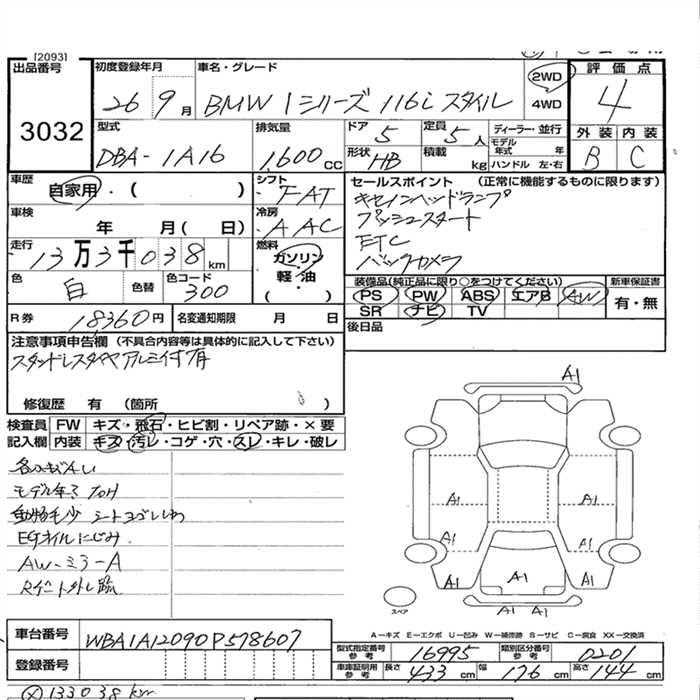 [2093]
出品番号 3032
初度登録年月 26 9月
車名・グレード BMW 1シリーズ 116i スタイル
2WD
4WD
評価点 4
外装 内装
B C
型式 DBA-1A16
排気量 1,600 cc
ドア 5
定員 5人
形状 HB
積載 kg
ディーラー・並行
モデル年式 年
ハンドル 左・右
車歴 自家用・( )
シフト FAT
車検 年 月( 日)
冷房 AAC
走行 13万3千038km
燃料 ガソリン
軽・油
( )
色 白 色替
色コード 300
R券 18360円
名変通知期限 月 日
セールスポイント (正常に機能するものに限ります)
キセノンヘッドランプ
プッシュスタート
ETC
バックカメラ
装備品(純正品に限り○をつけてください)
PS PW ABS エアB AW
SR ナビ TV
新車保証書
有・無
後日品
注意事項申告欄 (不具合内容等は具体的に記入して下さい)
スタッドレスタイヤアルミ付有
修復歴 有 (箇所 )
検査員記入欄
FW キズ・飛石・ヒビ割・リペア跡・×要
内装 キズ・汚レ・コゲ・穴・スレ・キレ・破レ
動物毛少 シートヨゴレしわ
EGオイルにじみ
AW-ミラ-A
A1
A1 A1
A1 A1
A1 A1 A1
A1 A1
スペア
A-キズ E-エクボ U-凹み W-補修跡 S-サビ C-腐食 XX-交換済
車台番号 WBA1A12090P578607
登録番号
型式指定番号参考 16995
類別区分番号参考 0201
車庫証明用参考 長さ 433cm 幅 176cm 高さ 144cm
133038km